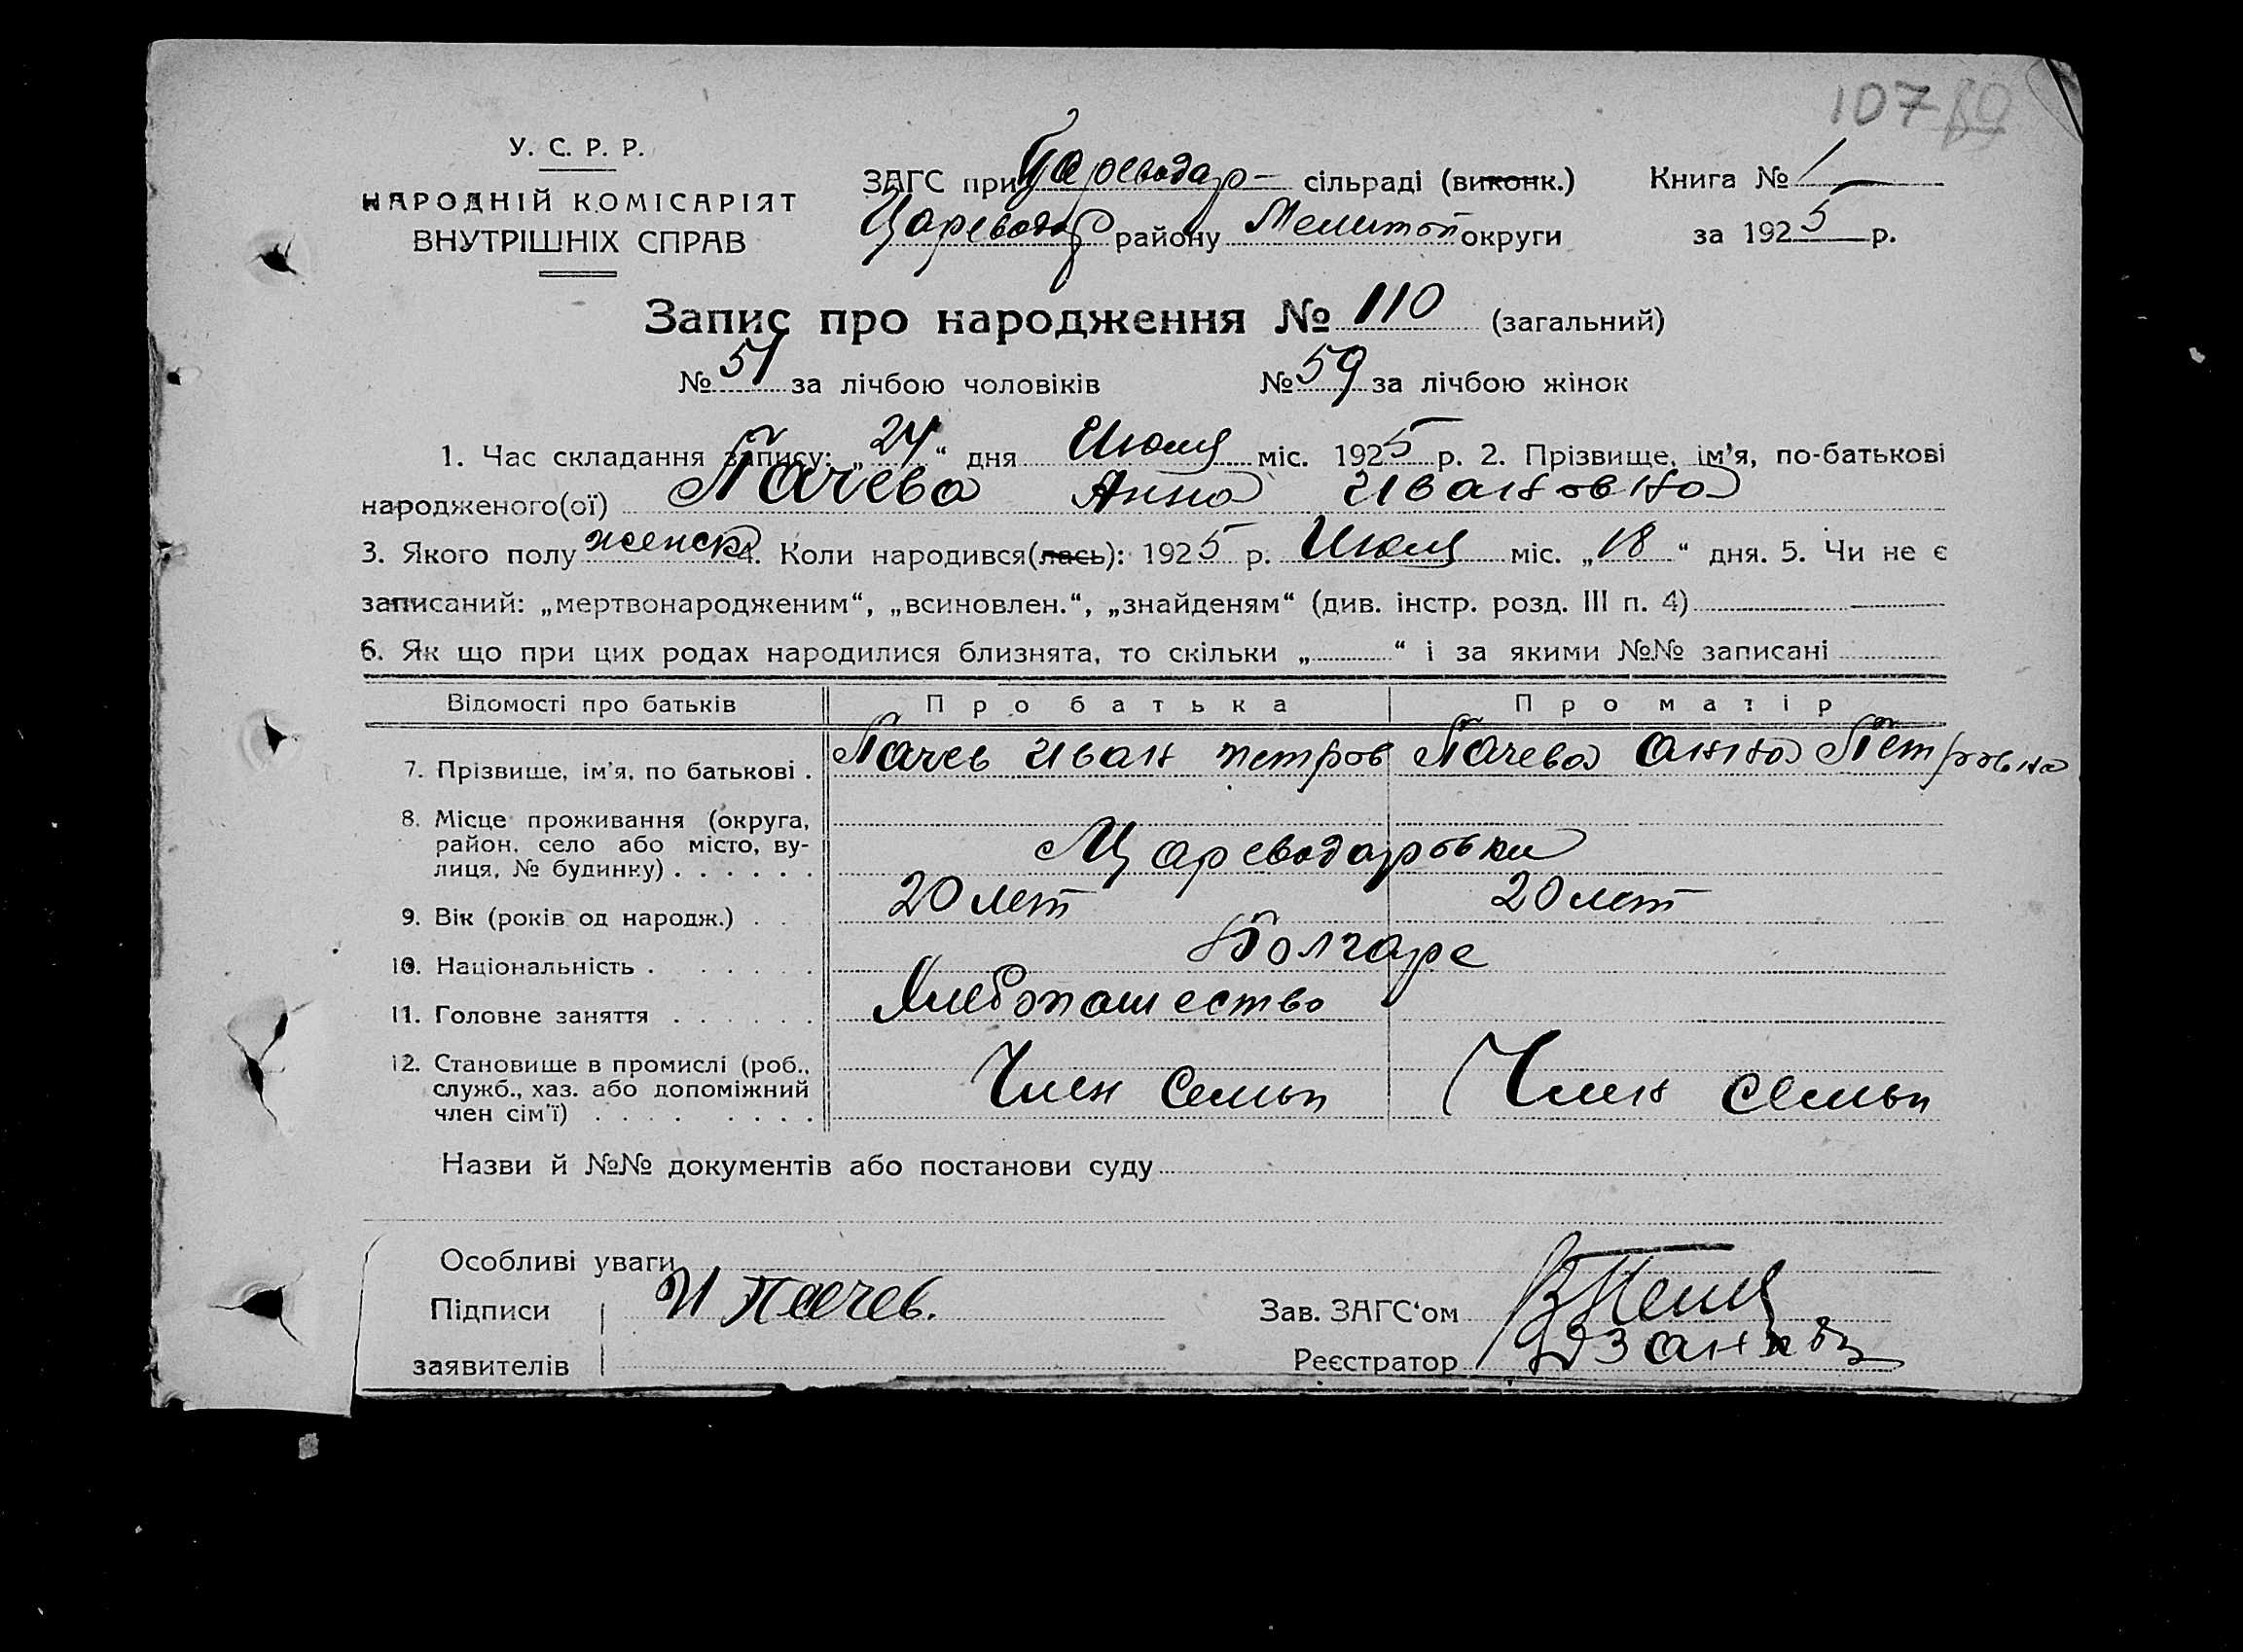 107
У. С. Р. Р.
НАРОДНІЙ КОМІСАРІЯТ
ВНУТРІШНІХ СПРАВ
ЗАГС при Царевода р- сільраді (виконк.)
Царевода р району Мелитоп округи
Книга № 1
за 1925 р.
Запис про народження № 110 (загальний)
№ 51 за лічбою чоловіків № 59 за лічбою жінок
1. Час складання запису: „24“ дня Июля міс. 1925 р. 2. Прізвище, ім'я, по-батькові
народженого(ої) Пачева Анна Ивановна
3. Якого полу женск 4. Коли народився(лась): 1925 р. Июля міс. „18“ дня. 5. Чи не є
записаний: „мертвонародженим“, „всиновлен.“, „знайденям“ (див. інстр. розд. III п. 4)
6. Як що при цих родах народилися близнята, то скільки „ “ і за якими №№ записані
Відомості про батьків Про батька Про матір
7. Прізвище, ім'я, по батькові . Пачев Иван петров Пачева Анна Петровна
8. Місце проживання (округа,
район, село або місто, ву-
лиця, № будинку) . . . . . . Цареводаровки
9. Вік (років од народж.) . . 20 лет 20 лет
10. Національність . . . . . . Болгаре
11. Головне заняття . . . . . . Хлебопашество
12. Становище в промислі (роб.,
служб., хаз. або допоміжний
член сім'ї) . . . . . . . . Член Семьи Член Семьи
Назви й №№ документів або постанови суду
Особливі уваги
Підписи И Пачев.
заявителів
Зав. ЗАГС'ом
Реєстратор